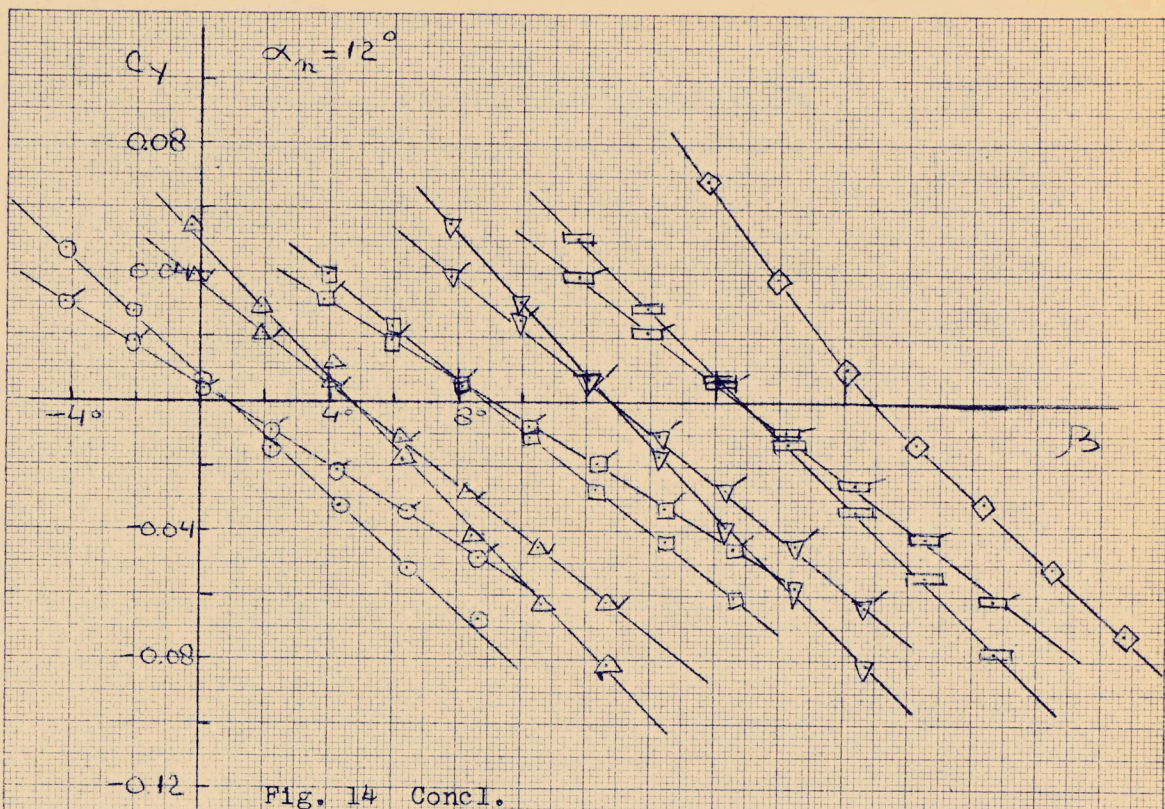 Cy
αn = 12°
0.08
0.04
-4°
4°
8°
β
-0.04
-0.08
-0.12
Fig. 14 Concl.